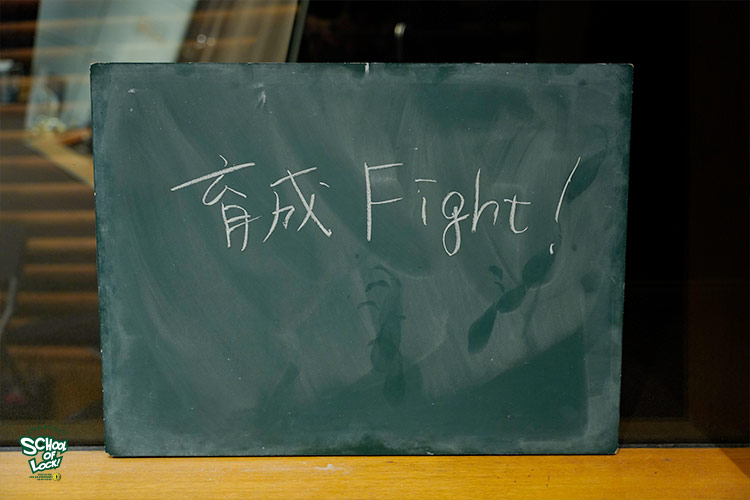 育成 Fight!
SCHOOL
OF
LOCK!